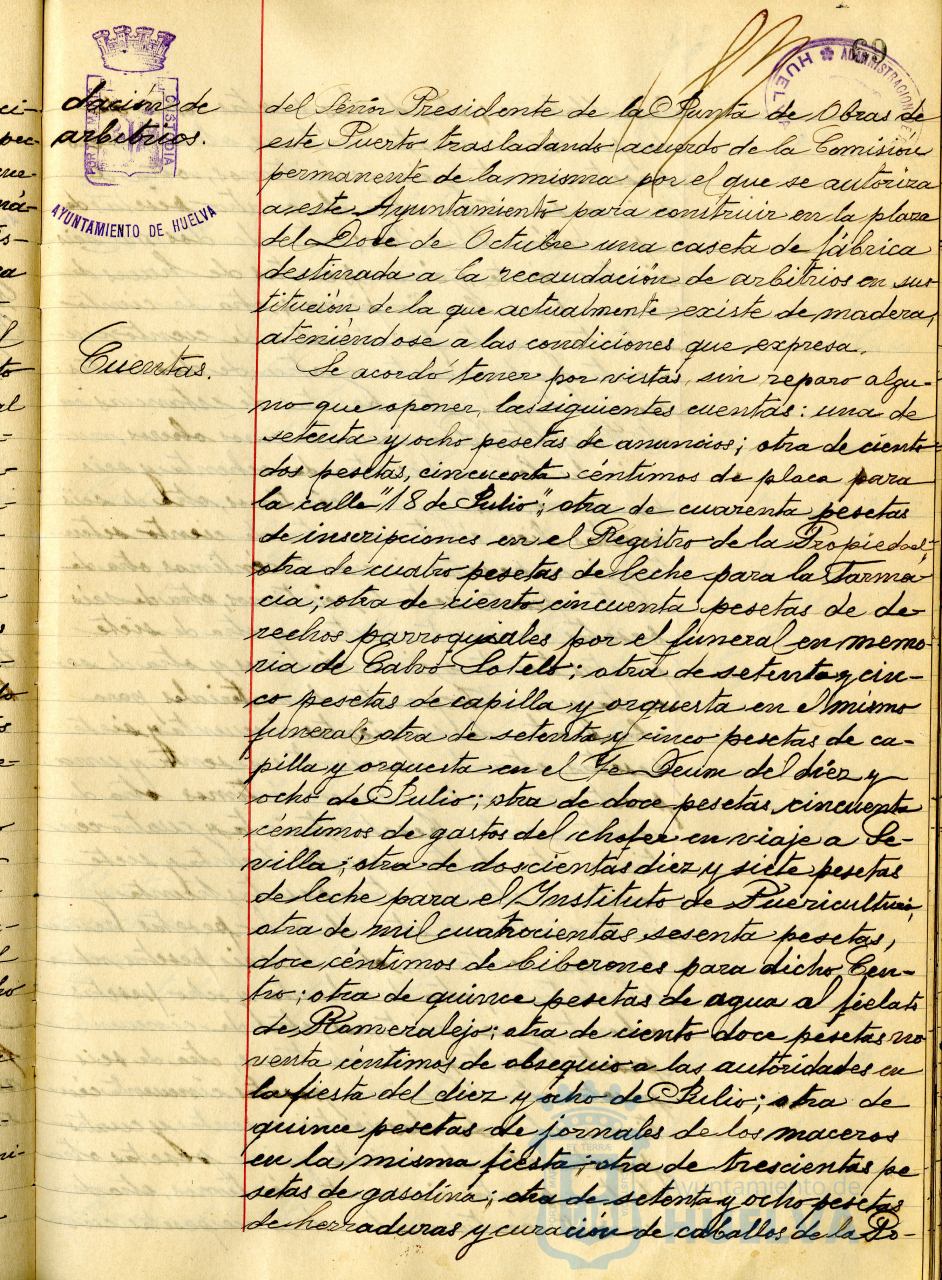 69
ADMINISTRACION
HUEL
PORT
CUSTODIA
AYUNTAMIENTO DE HUELVA
dación de
arbitrios.
del Señor Presidente de la Junta de Obras de
este Puerto trasladando acuerdo de la Comisión
permanente de la misma por el que se autoriza
a este Ayuntamiento para construir en la plaza
del Doce de Octubre una caseta de fábrica
destinada a la recaudación de arbitrios en sus-
titución de la que actualmente existe de madera,
ateniéndose a las condiciones que expresa.
Cuentas.
Se acordó tener por vistas, sin reparo algu-
no que oponer, las siguientes cuentas: una de
setenta y ocho pesetas de anuncios; otra de ciento
dos pesetas, cincuenta céntimos de placa para
la calle "18 de Julio"; otra de cuarenta pesetas
de inscripciones en el Registro de la Propiedad;
otra de cuatro pesetas de leche para la Farma-
cia; otra de ciento cincuenta pesetas de de-
rechos parroquiales por el funeral en memo-
ria de Calvo Sotelo; otra de setenta y cin-
co pesetas de capilla y orquesta en el mismo
funeral; otra de setenta y cinco pesetas de ca-
pilla y orquesta en el Te Deum del diez y
ocho de Julio; otra de doce pesetas, cincuenta
céntimos de gastos del chofer en viaje a Se-
villa; otra de doscientas diez y siete pesetas
de leche para el Instituto de Puericultura;
otra de mil cuatrocientas sesenta pesetas,
doce céntimos de biberones para dicho Cen-
tro; otra de quince pesetas de agua al fielato
de Romeralejo; otra de ciento doce pesetas no
venta céntimos de obsequio a las autoridades en
la fiesta del diez y ocho de Julio; otra de
quince pesetas de jornales de los maceros
en la misma fiesta; otra de trescientas pe
setas de gasolina; otra de setenta y ocho pesetas
de herraduras y curación de caballos de la Po-
Ayuntamiento de
HUELVA